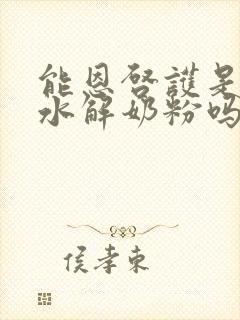 能恩啓護是
水解奶粉吗
侯孝東